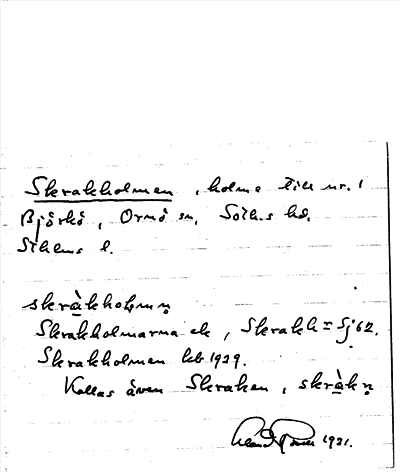 Skrakholmen, holme till nr. 1
Björkö, Ornö sn, Soth.s hd.
Sthlms l.
skràkhoḷmṇ
Skrakholmarna ek, Skrakh= Sj 62.
Skrakholmen hkb 1929.
Kallas även Skraken, skràkṇ
1931.